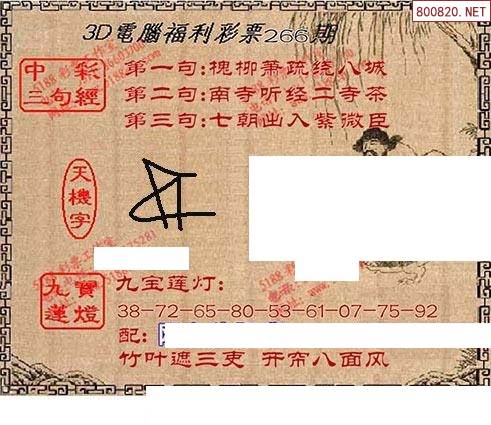 800820.NET
3D電腦福利彩票266期
中彩
三句經
第一句:槐柳萧疏绕八城
第二句:南寺听经二寺茶
第三句:七朝出入紫微臣
天機字
九寶
蓮燈
九宝莲灯:
38-72-65-80-53-61-07-75-92
配:
竹叶遮三吏 开帘八面风